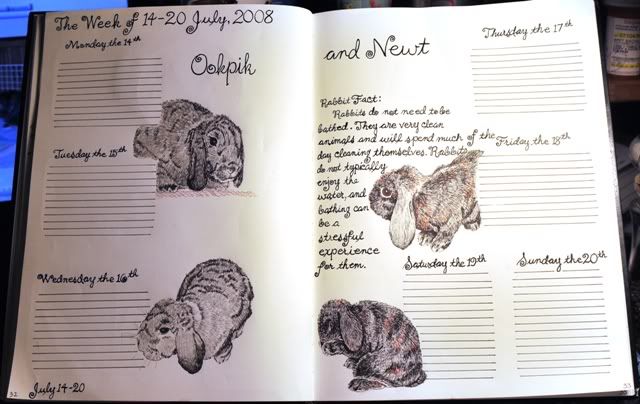 The Week of 14-20 July, 2008
Monday the 14th
Ookpik
Tuesday the 15th
Wednesday the 16th
32
July 14-20
and Newt
Thursday the 17th
Rabbit Fact:
Rabbits do not need to be
bathed. They are very clean
animals and will spend much of the
day cleaning themselves. Rabbits
do not typically
enjoy the
water, and
bathing can
be a
stressful
experience
for them.
Friday the 18th
Saturday the 19th
Sunday the 20th
33